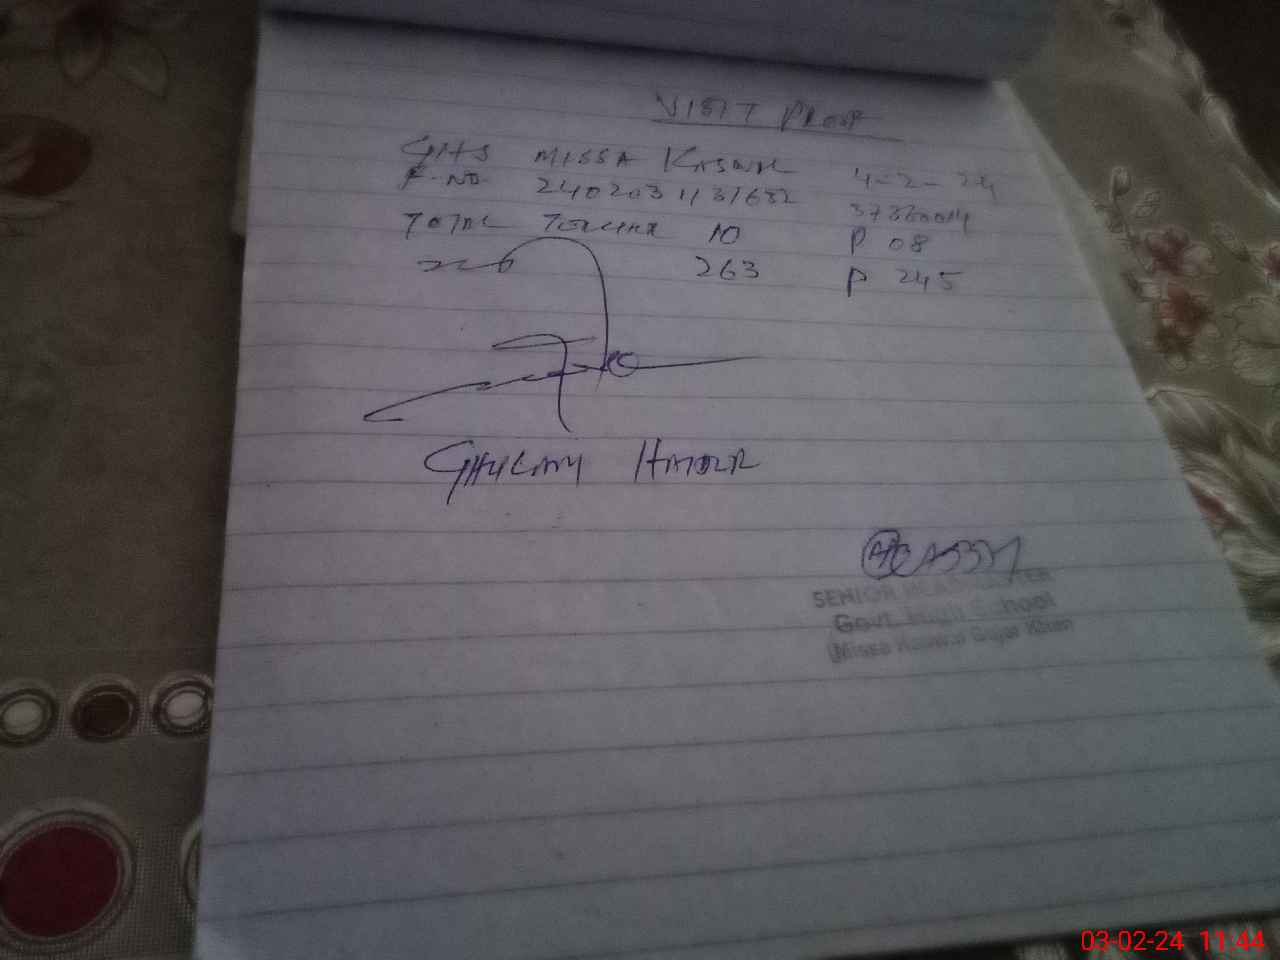 VISIT PROOF
GHS MISSA KASWAL 4-2-24
F. NO. 2402031131682 37360014
TOTAL TEACHER 10 P 08
263 P 245
GHULAM HAIDER
SENIOR HEADMASTER
Govt. High School
Missa Kaswal Gujar Khan
03-02-24 11:44